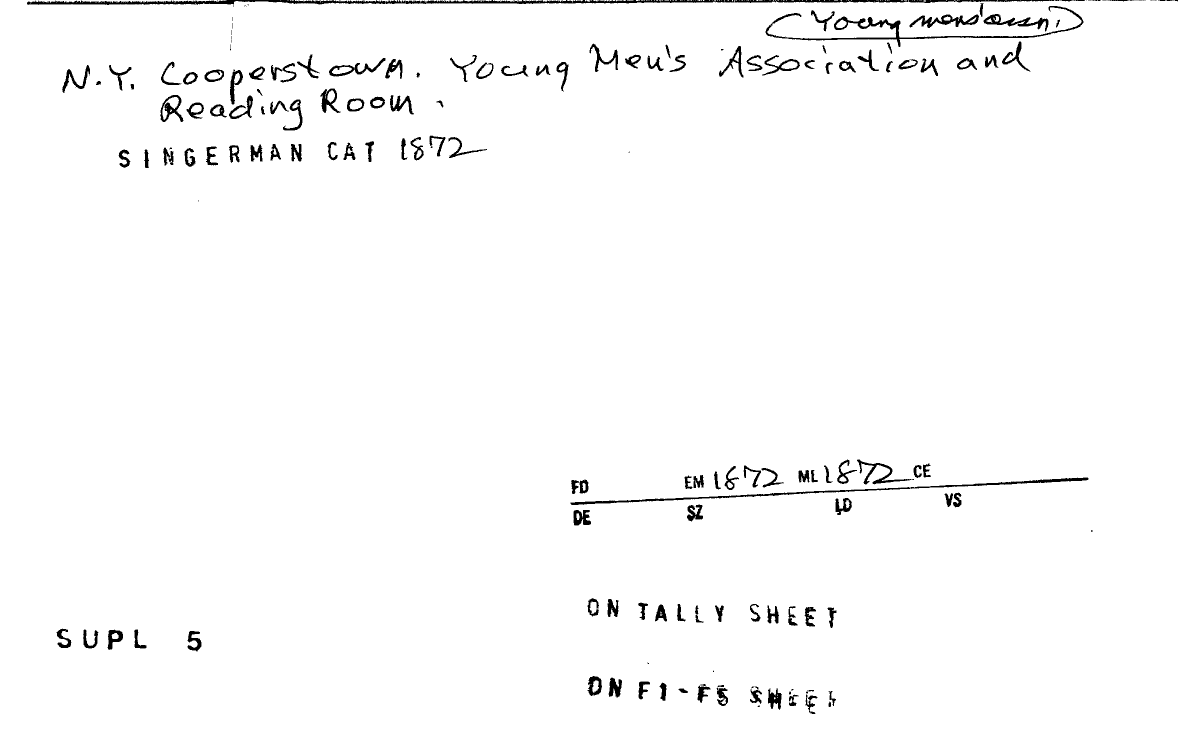 (Young men's assn.)
N.Y. Cooperstown. Young Men's Association and
Reading Room.
SINGERMAN CAT 1872
FD EM 1872 ML 1872 CE
DE SZ LD VS
ON TALLY SHEET
SUPL 5
ON F1-F5 SHEET